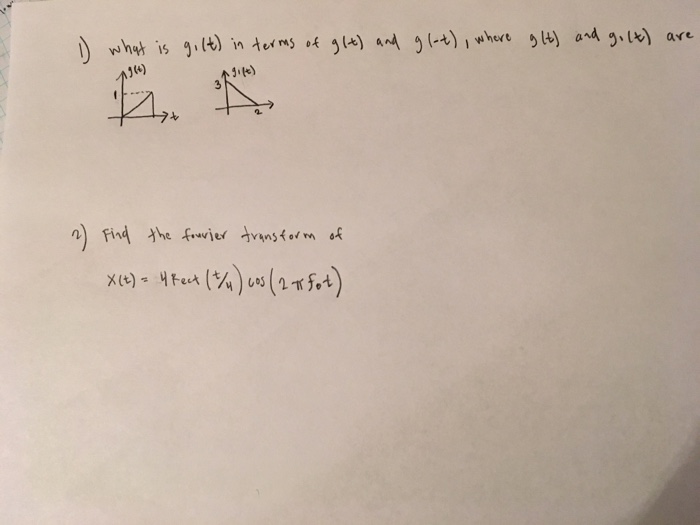 1) what is g₁(t) in terms of g(t) and g(-t), where g(t) and g₁(t) are
g(t) g₁(t)
1 3
t 2
2) Find the fourier transform of
x(t) = 4 Rect (t/4) cos (2πf₀t)